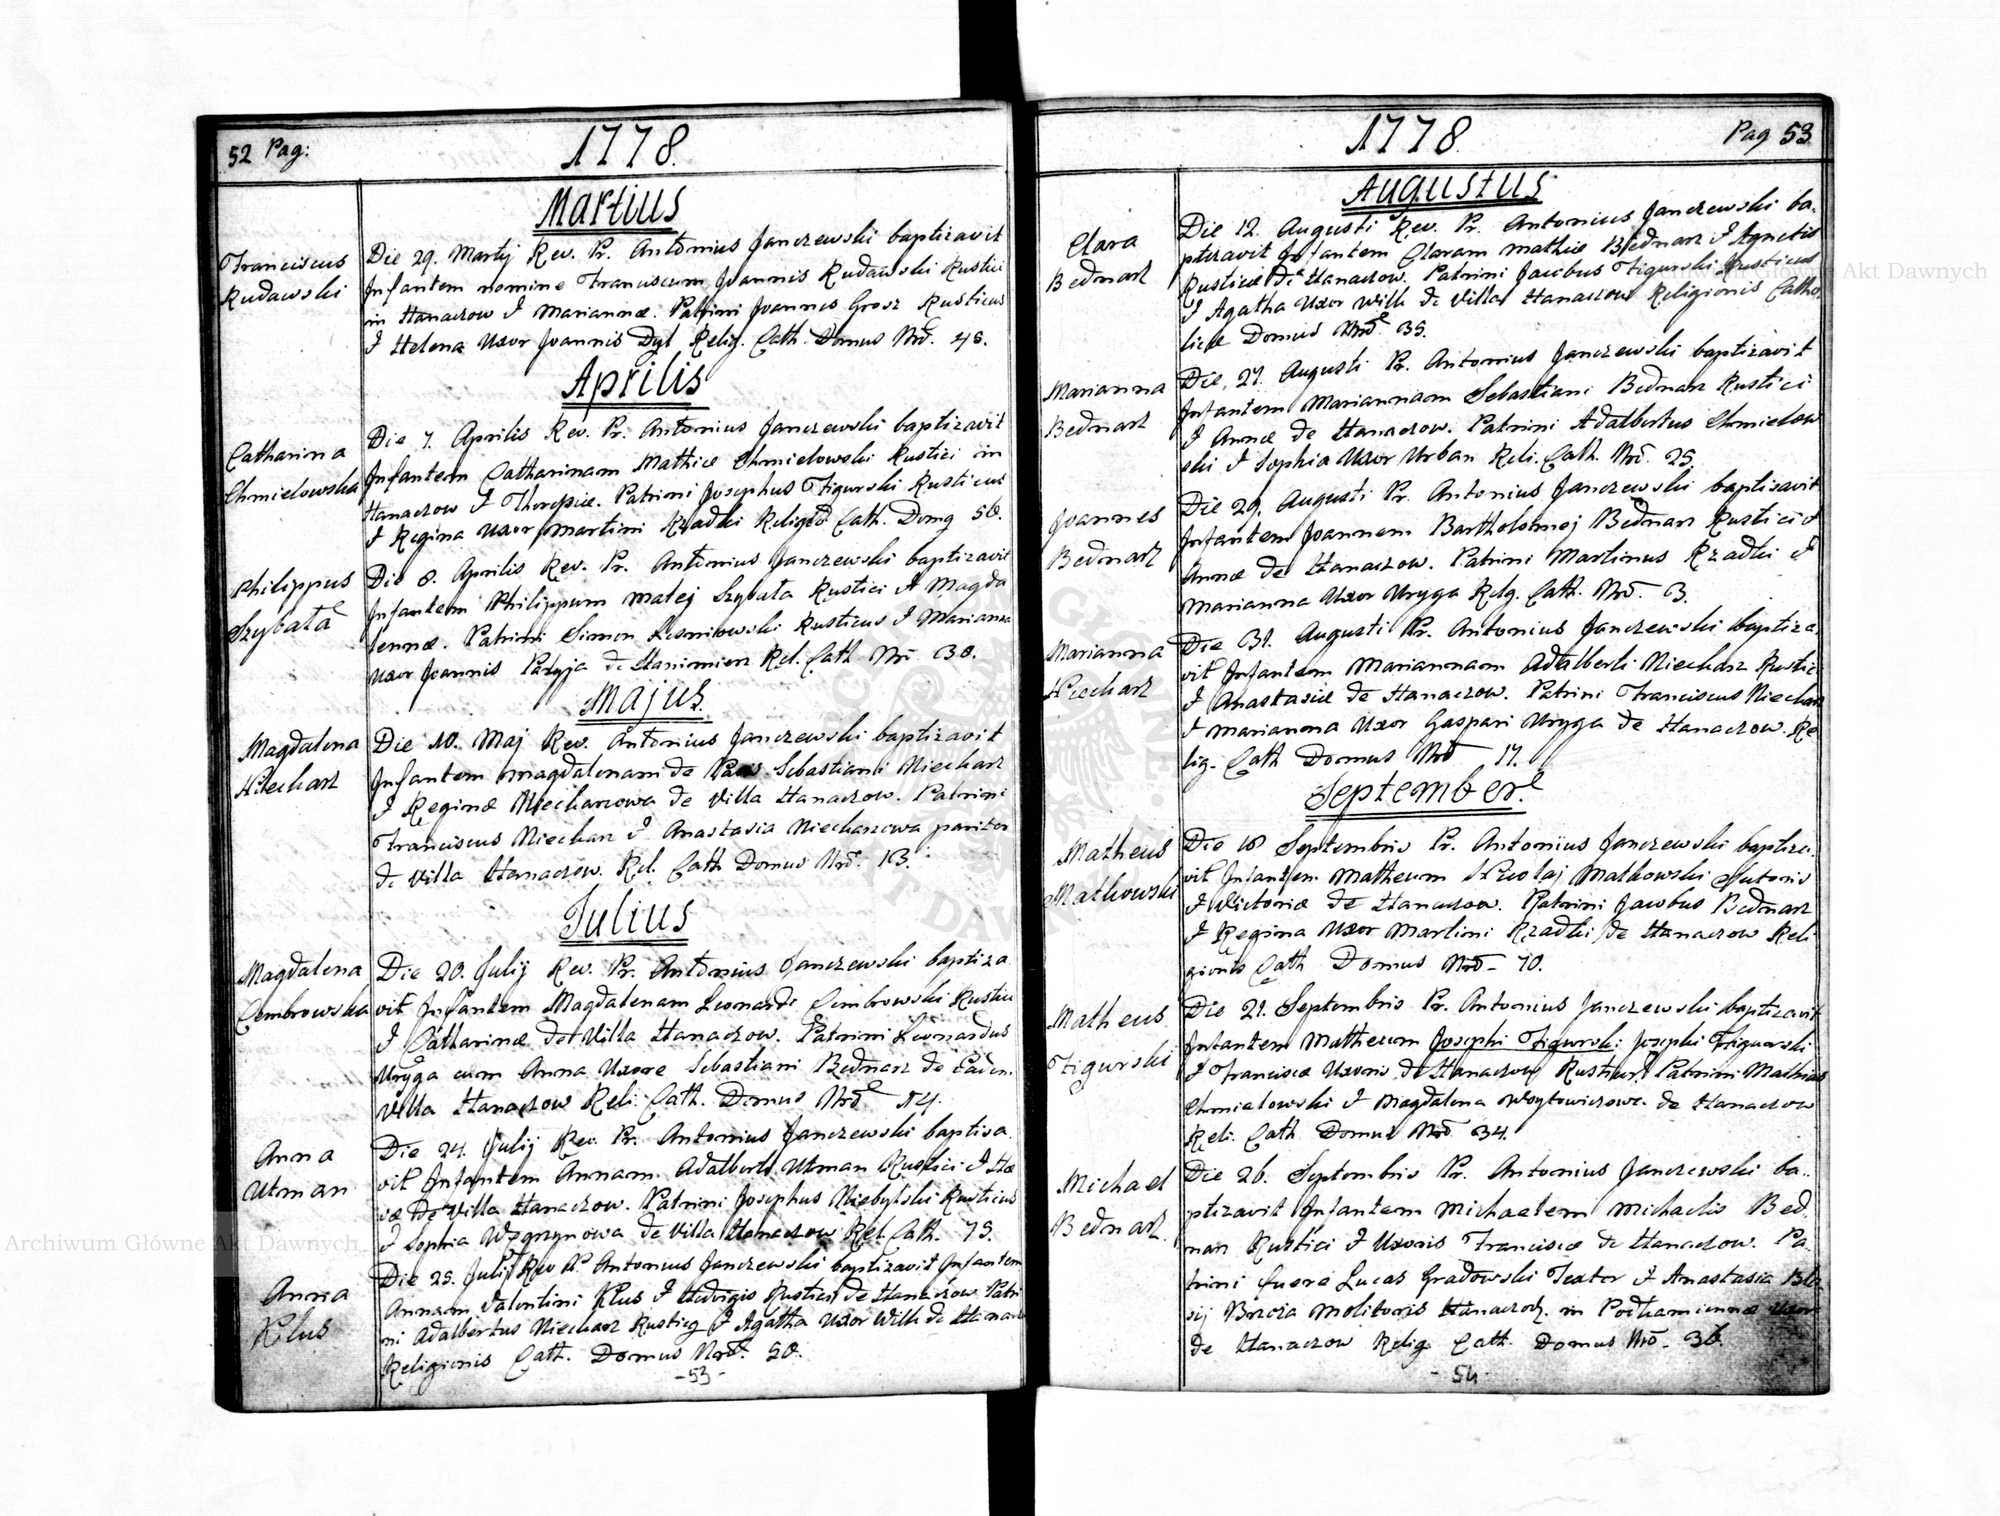 52 Pag:
1778.
Martius
Franciscus
Rudawski
Die 29. Martij Rev. Pr. Antonius Janczewski baptizavit
Infantem nomine Franciscum Joannis Rudawski Rustici
in Hanaczow & Mariannæ. Patrini Joannes Grosz Rusticus
& Helena Uxor Joannis Dyl Relig. Cath. Domus Nrō. 45.
Aprilis
Catharina
Chmielowska
Die 7. Aprilis Rev. Pr. Antonius Janczewski baptizavit
Infantem Catharinam Mathiæ Chmielowski Rustici in
Hanaczow & Theresiæ. Patrini Josephus Figurski Rusticus
& Regina Uxor Martini Rzadki Cath. 58.
Philippus
Szybata
Die 8. Aprilis Rev. Pr. Antonius Janczewski baptizavit
Infantem Philippum Matej Szybuta Rustici & Magda
lennæ. Patrini Simon Lesniowski Rusticus & Marianna
uxor Joannis de Hanimierz Rel. Cath Nrō 38.
Majus.
Magdalena
Niecharz
Die 10. Maj Rev. Antonius Janczewski baptizavit
Infantem Magdalenam de Sebastiani Niecharz
& Reginæ Niecharzowa de Villa Hanaczow. Patrini
Franciscus Niecharz & Anastasia Niecharzowa pariter
de Villa Hanaczow. Rel. Cath Domus Nrō. 13.
Julius
Magdalena
Cembrowska
Die 20. Julij Rev. Pr. Antonius Janczewski baptiza
vit Infantem Magdalenam Leonardi Cembrowski Rustici
& Catharinæ de Villa Hanaczow. Patrini Leonardus
Uryga cum Anna Uxore Sebastiani Bednarz de Eadem
Villa Hanaczow Reli. Cath. Domus Nrō 14.
Anna
Utman
Die 24. Julij Rev. Pr. Antonius Janczewski baptisa
vit Infantem Annam Adalberti Utman Rustici &
de Villa Hanaczow. Patrini Josephus Niebylski Rusticus
& Sophia Węgrzynowa de Villa Hanaczow Rel. Cath. 75.
Anna
Klus
Die 25. Julij Rev. P. Antonius Janczewski baptizavit Infantem
Annam Valentini Klus & Hedvigis Rustici de Hanaczow Patri
ni Adalbertus Niecharz & Agatha Uxor Wilk de
Religionis Cath. Domus Nrō. 50.
-53-
1778.
Pag 53
Augustus
Clara
Bednarz
Die 12. Augusti Rev. Pr. Antonius Janczewski ba-
ptizavit Infantem Claram Mathiæ Bednarz & Agnetis
Rusticæ de Hanaczow. Patrini Jacobus Figurski Rusticus
& Agatha Uxor Wilk de Villa Hanaczow Religionis Catho-
licæ Domus Nrō 35.
Marianna
Bednarz
Die 27. Augusti Pr. Antonius Janczewski baptizavit
Infantem Mariannam Sebastiani Bednarz Rustici
& Annæ de Hanaczow. Patrini Adalbertus Chmielow
ski & Sophia Uxor Urban Reli. Cath. Nrō. 25.
Joannes
Bednarz
Die 29. Augusti Pr. Antonius Janczewski baptisavit
Infantem Joannem Bartholomej Bednarz Rustici &
Annæ de Hanaczow. Patrini Martinus Rzadki &
Marianna Uxor Uryga Relg. Cath. Nrō. 3.
Marianna
Niecharz
Die 31. Augusti Pr. Antonius Janczewski baptiza
vit Infantem Mariannam Adalberti Niecharz Rustici
& Anastasiæ de Hanaczow. Patrini Franciscus Niecharz
& Marianna Uxor Gaspari Uryga de Hanaczow. Re
lig. Cath Domus Nrō 17.
September.
Matheus
Malkowski
Die 18 Septembris Pr. Antonius Janczewski baptiza-
vit Infantem Matheum Nicolaj Malkowski Sutoris
& Victoriæ de Hanaczow. Patrini Jacobus Bednarz
& Regina Uxor Martini Rzadki de Hanaczow Reli
gionis Cath Domus Nrō- 70.
Matheus
Figurski
Die 21. Septembris Pr. Antonius Janczewski baptizavit
Infantem Matheum Josephi Figurski: Josephi Figurski
& Franciscæ Uxoris de Hanaczow Rustici. Patrini Mathias
Chmielowski & Magdalena Woytowiczowa de Hanaczow
Reli. Cath. Domus Nrō 34.
Michael
Bednarz
Die 26. Septembris Pr. Antonius Janczewski ba-
ptizavit Infantem Michaelem Michaelis Bed
narz Rustici & Uxoris Franciscæ de Hanaczow. Pa
trini fuere Lucas Gradowski Textor & Anastasia
Molitoris in Podkamienna uxor
de Hanaczow Relig. Cath. Domus Nrō- 36.
-54-
Archiwum Główne Akt Dawnych
Archiwum Główne Akt Dawnych